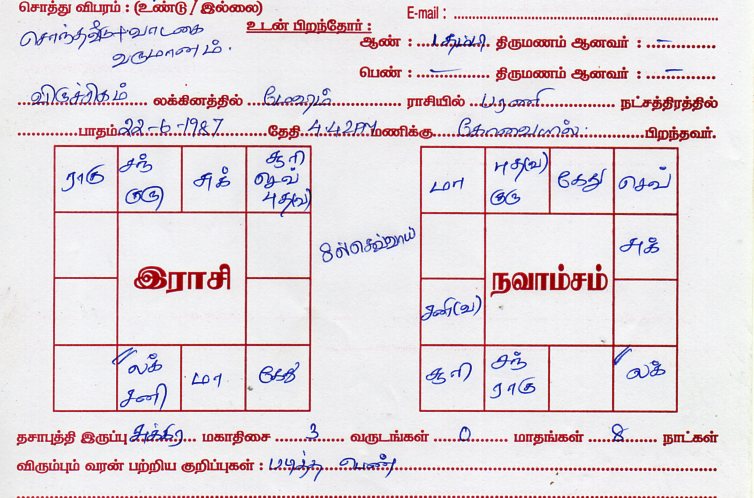 சொத்து விபரம் : (உண்டு / இல்லை)
E-mail :
சொந்தவீடு+வாடகை
வருமானம்.
உடன் பிறந்தோர் :
ஆண் : 1 தம்பி திருமணம் ஆனவர் : –
பெண் : – திருமணம் ஆனவர் : –
விருச்சிகம் லக்கினத்தில் மேஷம் ராசியில் பரணி நட்சத்திரத்தில்
பாதம் 22-6-1987 தேதி 4.42PM மணிக்கு கோவையில் பிறந்தவர்.
ராகு சந் குரு சுக் சூரி செவ் புத(வ)
மா புத(வ) குரு கேது செவ்
8ல் செவ்வாய்
சுக்
இராசி
நவாம்சம்
சனி(வ)
லக் சனி மா கேது
சூரி சந் ராகு லக்
தசாபுத்தி இருப்பு சுக்கிர மகாதிசை 3 வருடங்கள் 0 மாதங்கள் 8 நாட்கள்
விரும்பும் வரன் பற்றிய குறிப்புகள் : படித்த பெண்